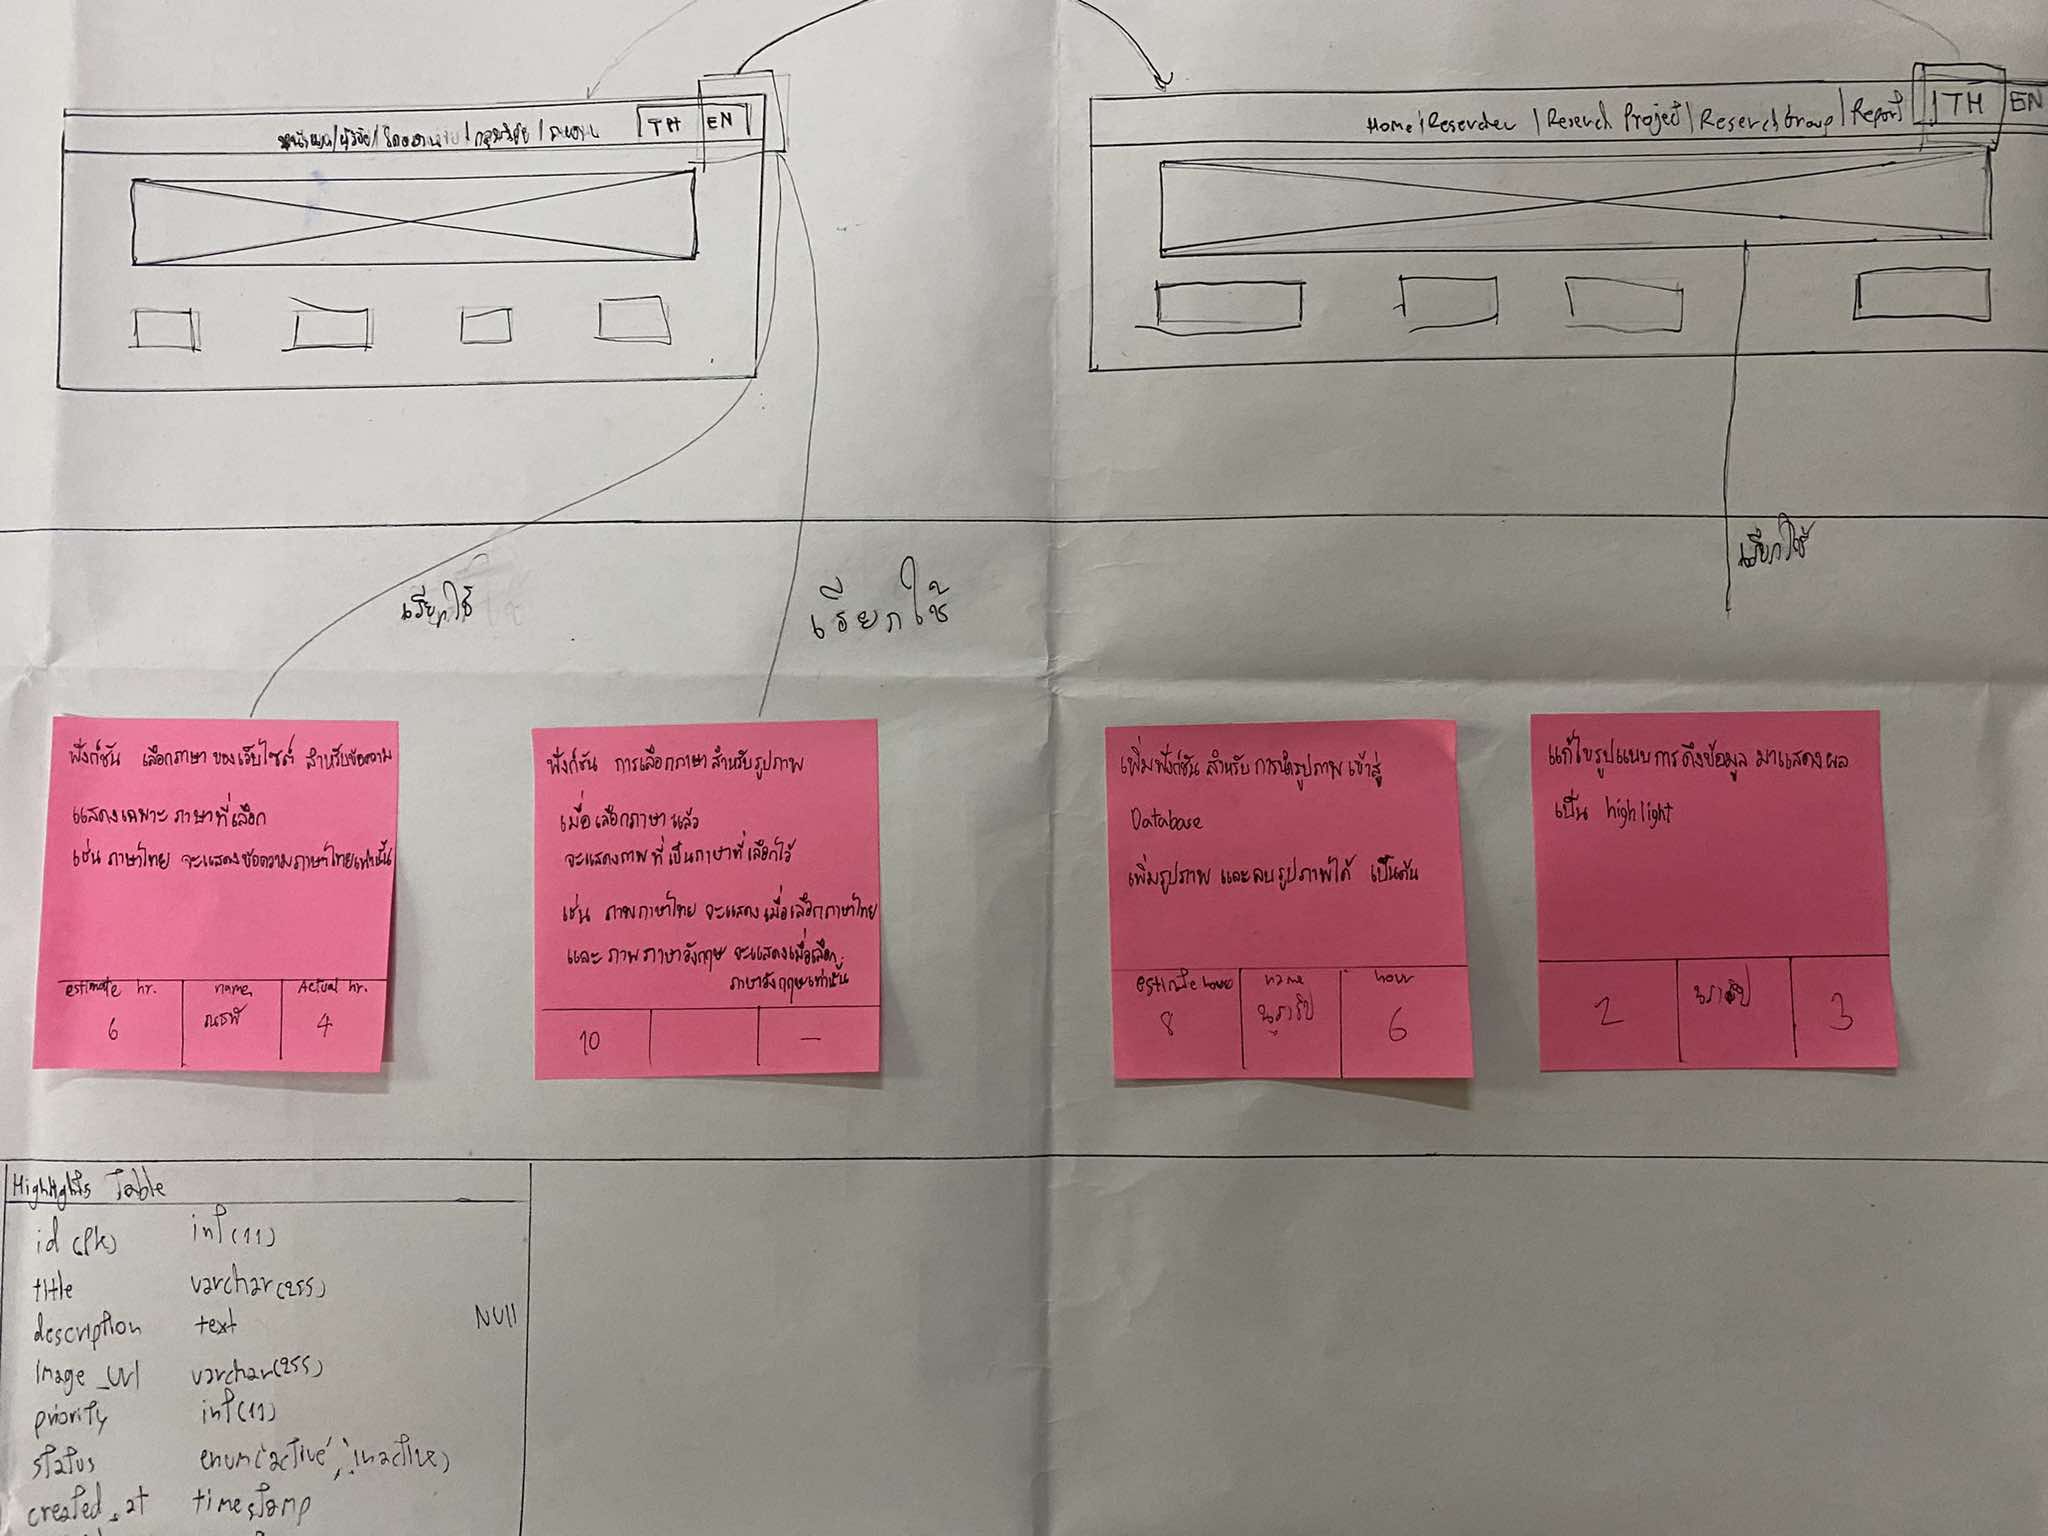 TH EN
Home | Researcher | Reserch Project | Reserch Group | Report | TH EN
เรียกใช้
เรียกใช้
เรียกใช้
ฟังก์ชัน เลือกภาษา ของเว็บไซต์ สำหรับข้อความ
แสดงเฉพาะ ภาษาที่เลือก
เช่น ภาษาไทย จะแสดงข้อความภาษาไทยเท่านั้น
estimate hr. name Actual hr.
6 4
ฟังก์ชัน การเลือกภาษา สำหรับรูปภาพ
เมื่อเลือกภาษาแล้ว
จะแสดงภาพที่เป็นภาษาที่เลือกไว้
เช่น ภาพภาษาไทย จะแสดงเมื่อเลือกภาษาไทย
และ ภาพภาษาอังกฤษ จะแสดงเมื่อเลือก
ภาษาอังกฤษเท่านั้น
10 —
เพิ่มฟังก์ชัน สำหรับ การนำรูปภาพ เข้าสู่
Database
เพิ่มรูปภาพ และลบรูปภาพได้ เป็นต้น
estimate hour name hour
8 6
แก้ไขรูปแบบการดึงข้อมูล มาแสดงผล
เป็น highlight
2 3
Highlights Table
id (pk) int(11)
title varchar(255)
description text NUll
Image_Url varchar(255)
priority int(11)
status enum('active','inactive)
created_at timestamp